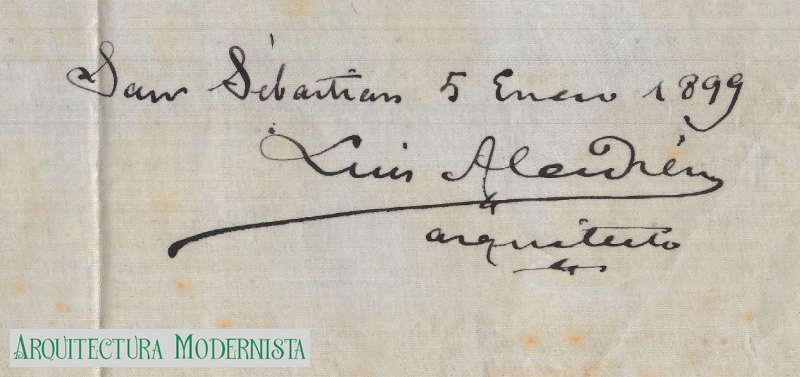 San Sebastian 5 Enero 1899
Luis Aladrén
arquitecto
ARQUITECTURA MODERNISTA